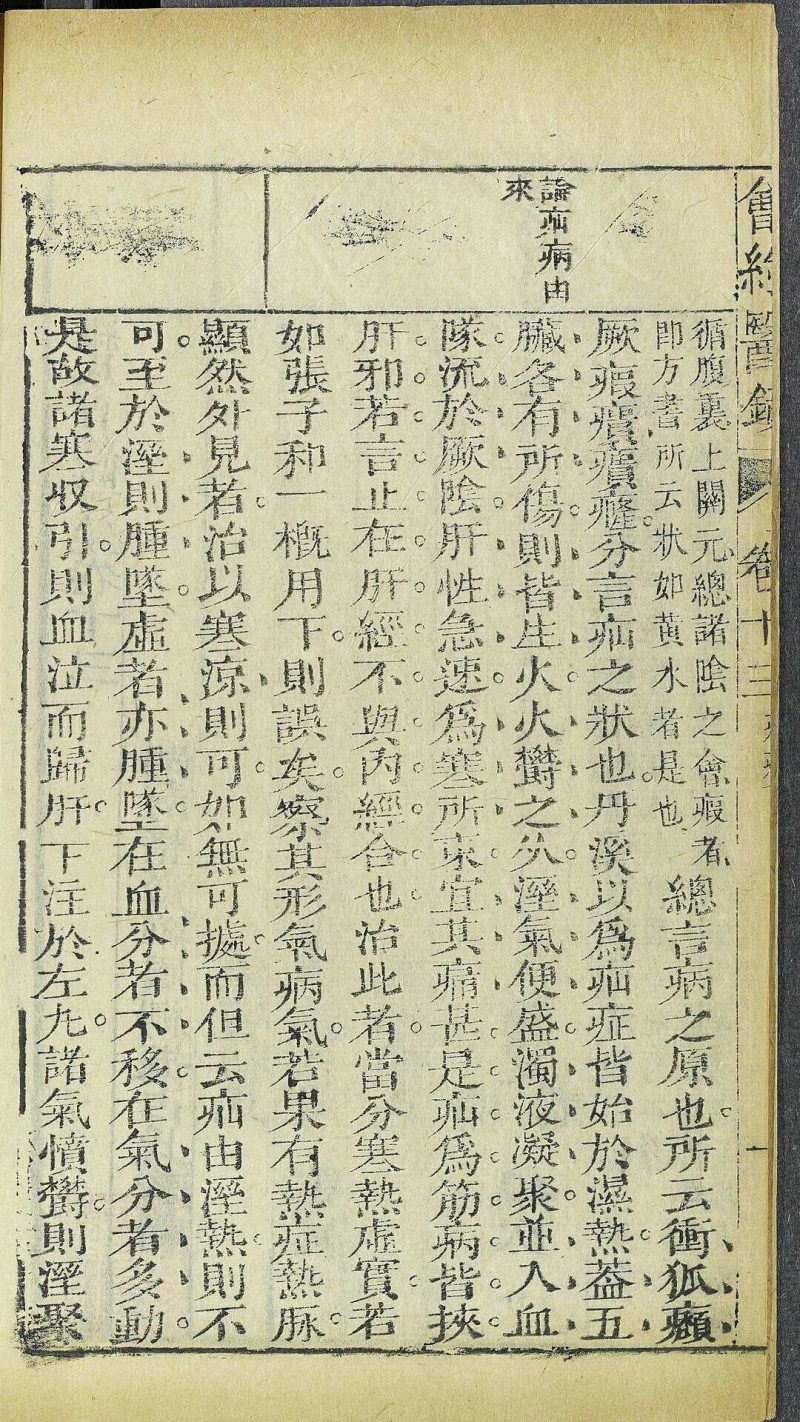 會經醫鏡 卷十三
論疝病由
來
循腹裏上關元總諸陰之會瘕者
即方書所云狀如黃水者是也
總言病之原也所云衝狐㿗
厥瘕㿉㿗癃分言疝之狀也丹溪以為疝症皆始於濕熱蓋五
臟各有所傷則皆生火火鬱之久溼氣便盛濁液凝聚並入血
隊流於厥陰肝性急速為寒所束宜其痛甚是疝為筋病皆挾
肝邪若言止在肝經不與內經合也治此者當分寒熱虛實若
如張子和一概用下則誤矣察其形氣病氣若果有熱症熱脈
顯然外見者治以寒涼則可如無可據而但云疝由溼熱則不
可至於溼則腫墜虛者亦腫墜在血分者不移在氣分者多動
是故諸寒収引則血泣而歸肝下注於左丸諸氣憤鬱則溼聚